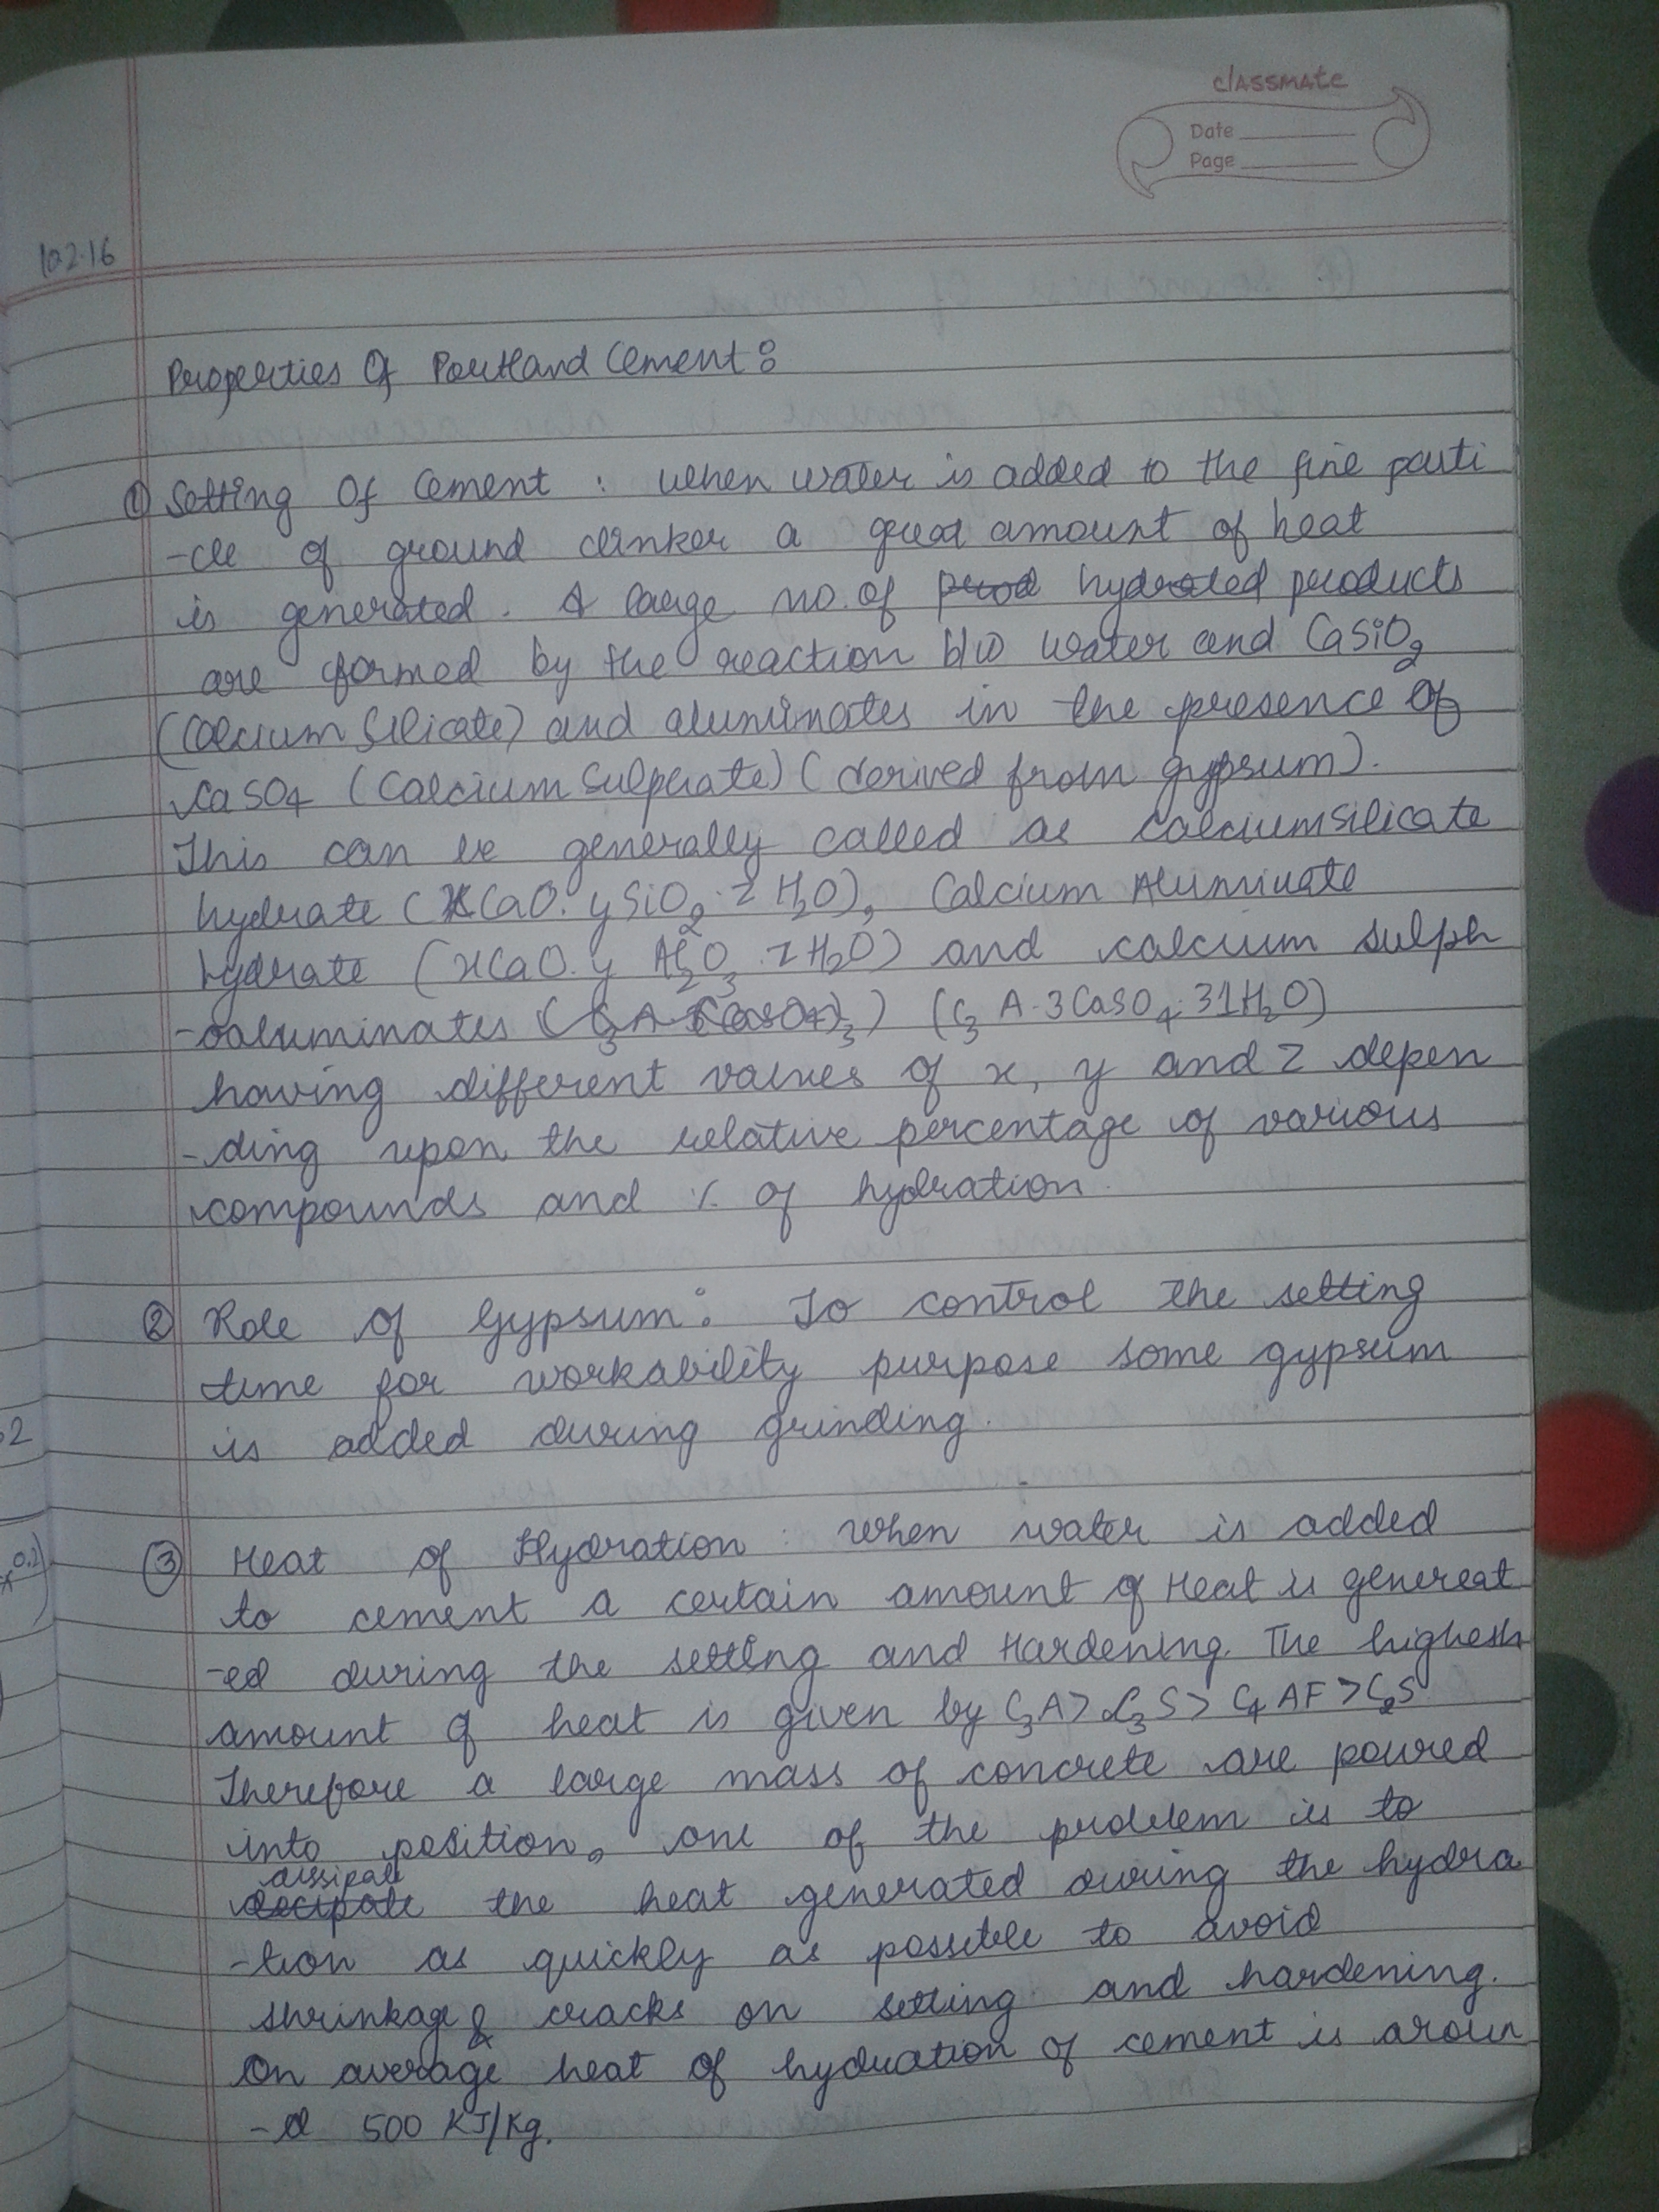 classmate
Date
Page
10.2.16
Properties Of Portland Cement :
① Setting Of Cement : when water is added to the fine parti
-cle of ground clinker a great amount of heat
is generated. A large no. of hydrated products
are formed by the reaction b/w water and CaSiO2
(Calcium Silicate) and aluminates in the presence of
CaSO4 (Calcium Sulphate) (derived from gypsum).
This can be generally called as calcium silicate
hydrate (xCaO.ySiO2.zH2O), Calcium Aluminate
hydrate (xCaO.y Al2O3.zH2O) and calcium sulph
-oaluminates (C3A.3CaSO4.31H2O)
having different values of x, y and z depen
-ding upon the relative percentage of various
compounds and % of hydration.
② Role of Gypsum : To control the setting
time for workability purpose some gypsum
is added during grinding.
③ Heat of Hydration : When water is added
to cement a certain amount of Heat is genereat
-ed during the setting and Hardening. The highest
amount of heat is given by C3A > C3S > C4AF > C2S
Therefore a large mass of concrete are poured
into position, one of the problem is to
dissipate the heat generated during the hydra
-tion as quickly as possible to avoid
shrinkage & cracks on setting and hardening.
On average heat of hydration of cement is aroun
-d 500 KJ/Kg.